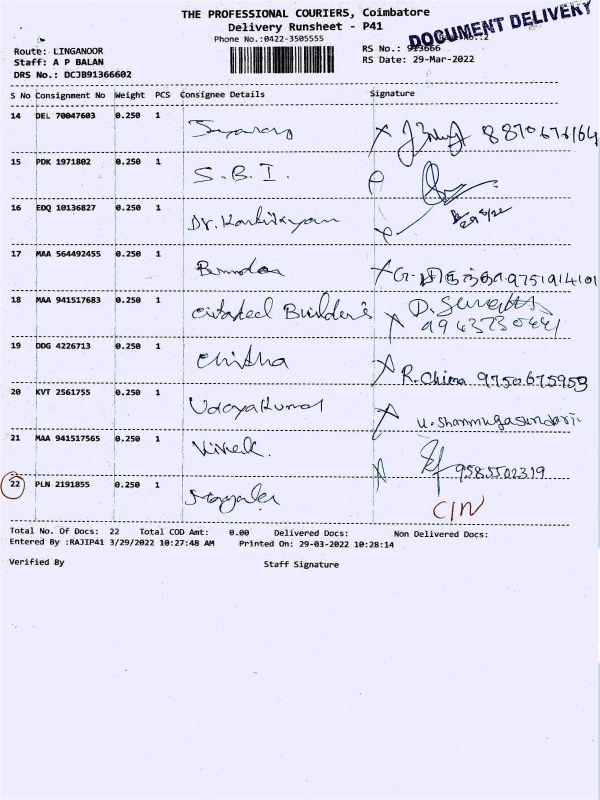 THE PROFESSIONAL COURIERS, Coimbatore
Delivery Runsheet - P41
DOCUMENT DELIVERY
Phone No.:0422-3505555
Route: LINGANOOR
RS No.: 913666
Staff: A P BALAN
RS Date: 29-Mar-2022
DRS No.: DCJB91366602
S No Consignment No Weight PCS Consignee Details Signature
14 DEL 70047603 0.250 1 8870676164
15 PDK 1971802 0.250 1 S.B.I.
16 EDQ 10136827 0.250 1 Dr. Karthikeyan
17 MAA 564492455 0.250 1 9751914101
18 MAA 941517683 0.250 1 Builder's
19 DDG 4226713 0.250 1 Chitha R. Chitra 9750675959
20 KVT 2561755 0.250 1 Udayakumar u. shanmugasundari
21 MAA 941517565 0.250 1 Vivek. 9585502319
22 PLN 2191855 0.250 1 C/N
Total No. Of Docs: 22 Total COD Amt: 0.00 Delivered Docs: Non Delivered Docs:
Entered By :RAJIP41 3/29/2022 10:27:48 AM Printed On: 29-03-2022 10:28:14
Verified By Staff Signature